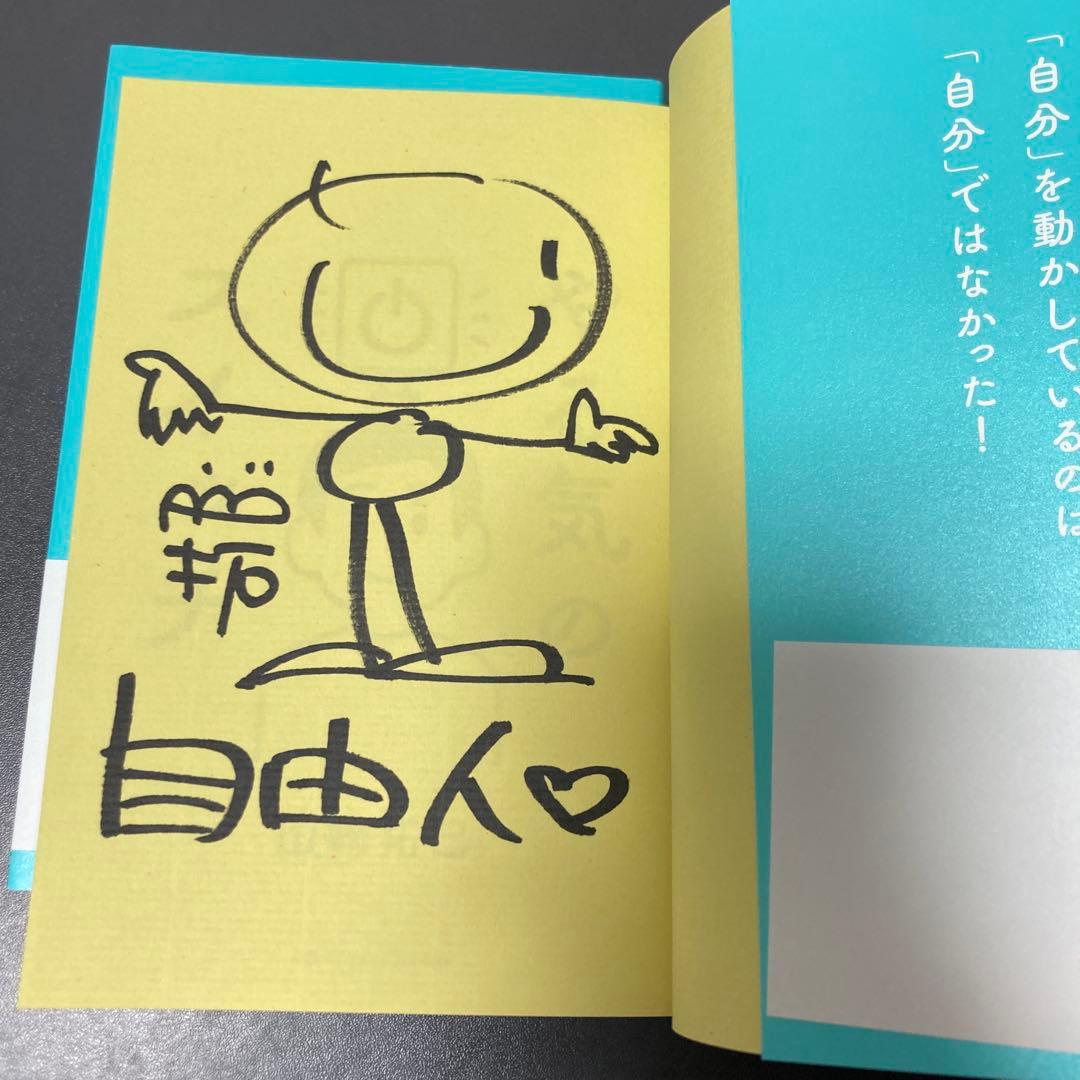 「自分」を動かしているのは
「自分」ではなかった！
自由人♡